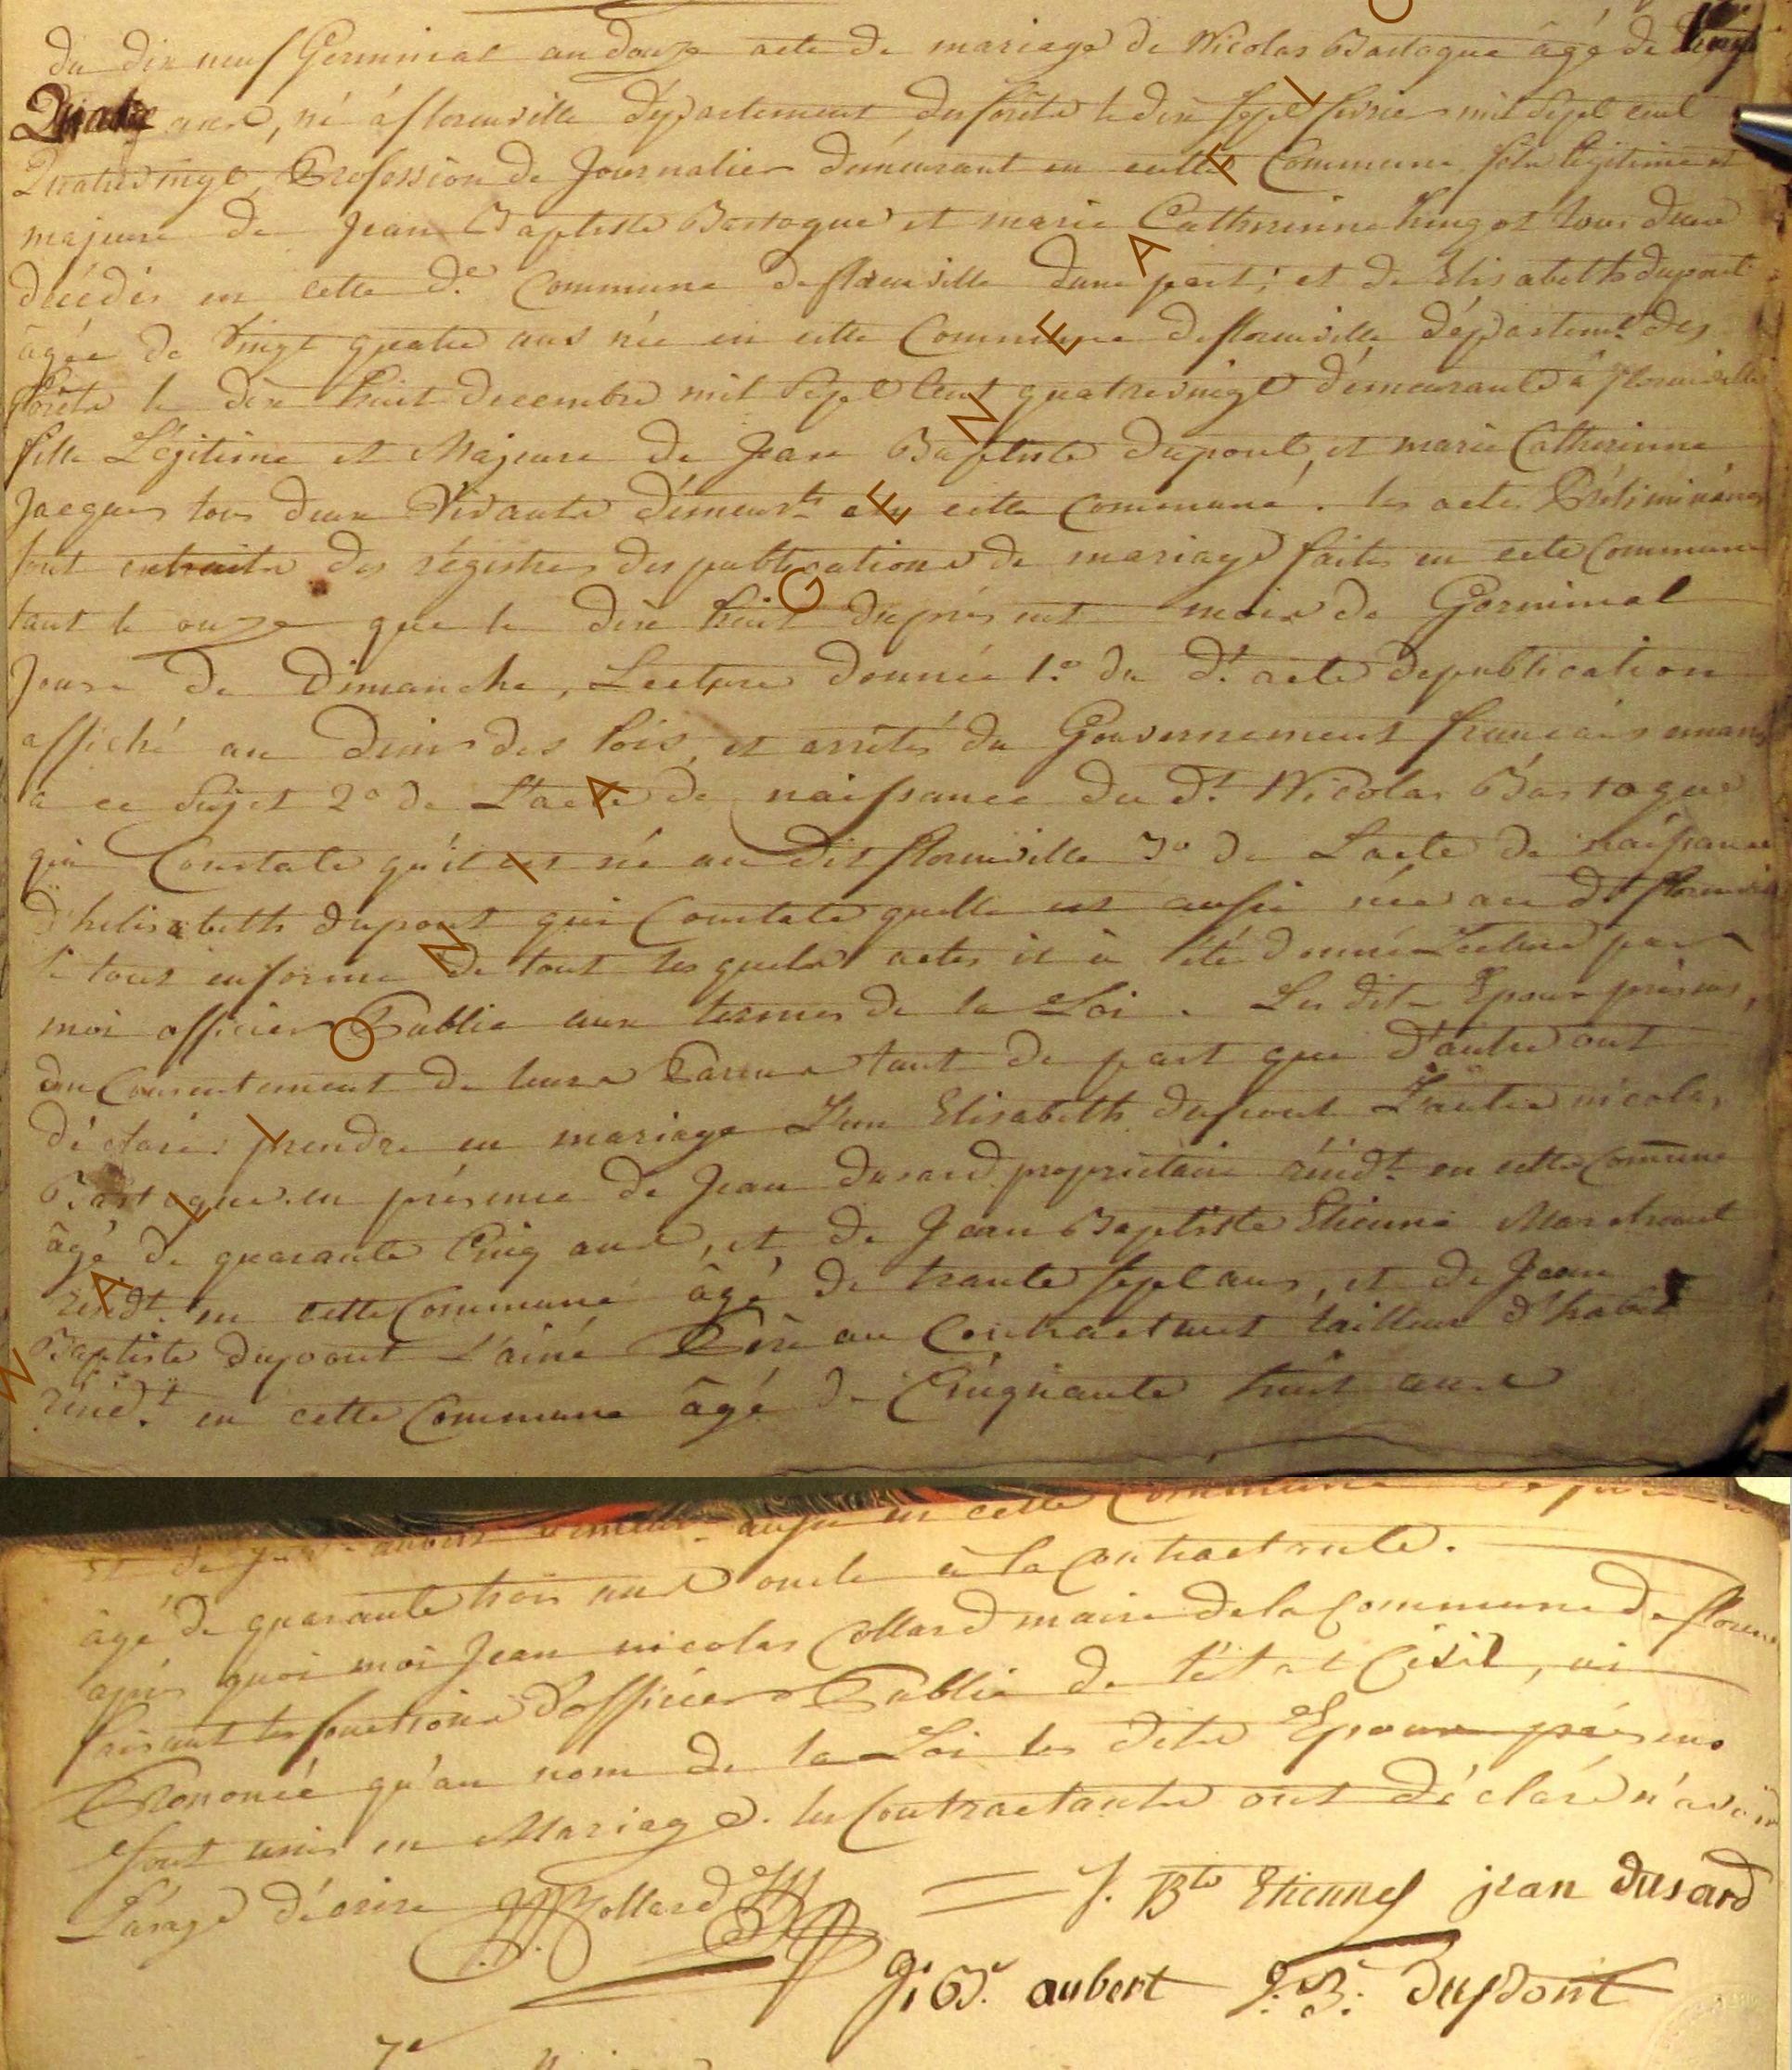 Du dix neuf Germinal an douze acte de mariage de Nicolas Bastogne âgé de vingt
Quatre ans, né à florenville département des forêts le dix sept février mil sept cent
Quatrevingt, Profession de Journalier demeurant en cette Commune fils légitime et
majeure de Jean Baptiste Bastogne et marie Catherinne hengot tous deux
décédés en cette de. Commune de florenville dune part; et de Elisabeth dupont
âgée de vingt quatre ans née en cette Commune de florenville départemt. des
forêts le dix huit decembre mil sept Cent quatrevingt demeurante à florenville
fille Légitime et Majeure de Jean Baptiste dupont, et marie Catherinne
Jacques tous deux Vivants démeurts en cette Commune. les actes Préliminaires
sont extraits des régistres des publications de mariage faites en cete Commune
tant le onze que le dix huit duprésent mois de Germinal
Jours de Dimanche, Lecture donnée 1.° du dt. acte depublication
affiché au desir des lois, et arrêtés du Gouvernement français
à ce sujet 2° de L'acte de naissance du dt. Nicolas Bastogne
qui Constate qu'il est né au dit florenville 3° de Lacte de naissance
d'helisabeth dupont qui Constate quelle est aussi née au dt florenville
le tout enforme de tout lesquels actes il à été donné Lecture par
moi officier Public aux termes de la Loi. Les dits Epoux présens,
du Consentement de leurs Parens tant de part que d'autre ont
déclarés prendre en mariage L'un Elisabeth dupont L'autre nicolas
Bastogne en présence de Jean dusard propriétaire résidt. en cette Comune
âgé de quarante Cinq ans, et de Jean Baptiste Etienne Marchand
résidt. en cette Commune âgé de trante sept ans, et de Jean
Baptiste dupont L'ainé Père au Contractant tailleur d'habit
résidt. en cette Commune âgé de Cinquante huit ans
aussi en cette Commune
âgé de quarante trois ans oncle à la Contractante.
après quoi moi Jean nicolas Collard maire de la Commune de floren
faisant les fonctions d'officier Public de l'état Civil, ai
Prononcé qu'au nom de la Loi les dits Epoux présens
sont unis en Mariage. les Contractants ont déclaré n'avoir
L'usage décrire JN Collard J. Bte Etienne jean dusard
J: Bt. aubert J: B: dupont
WALLONIA GENEAFL